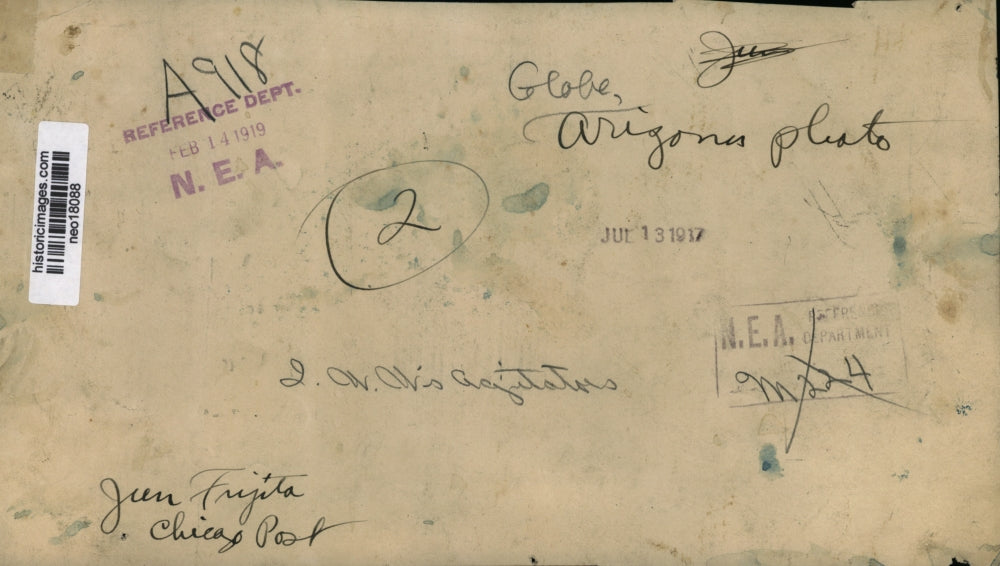 A918
REFERENCE DEPT.
FEB 14 1919
N. E. A.
Jun
Globe,
Arizona photo
2
JUL 13 1917
historicimages.com
neo18088
N.E.A. REFERENCE
DEPARTMENT
M224
I. W. W's Agitators
Jun Fujita
Chicago Post